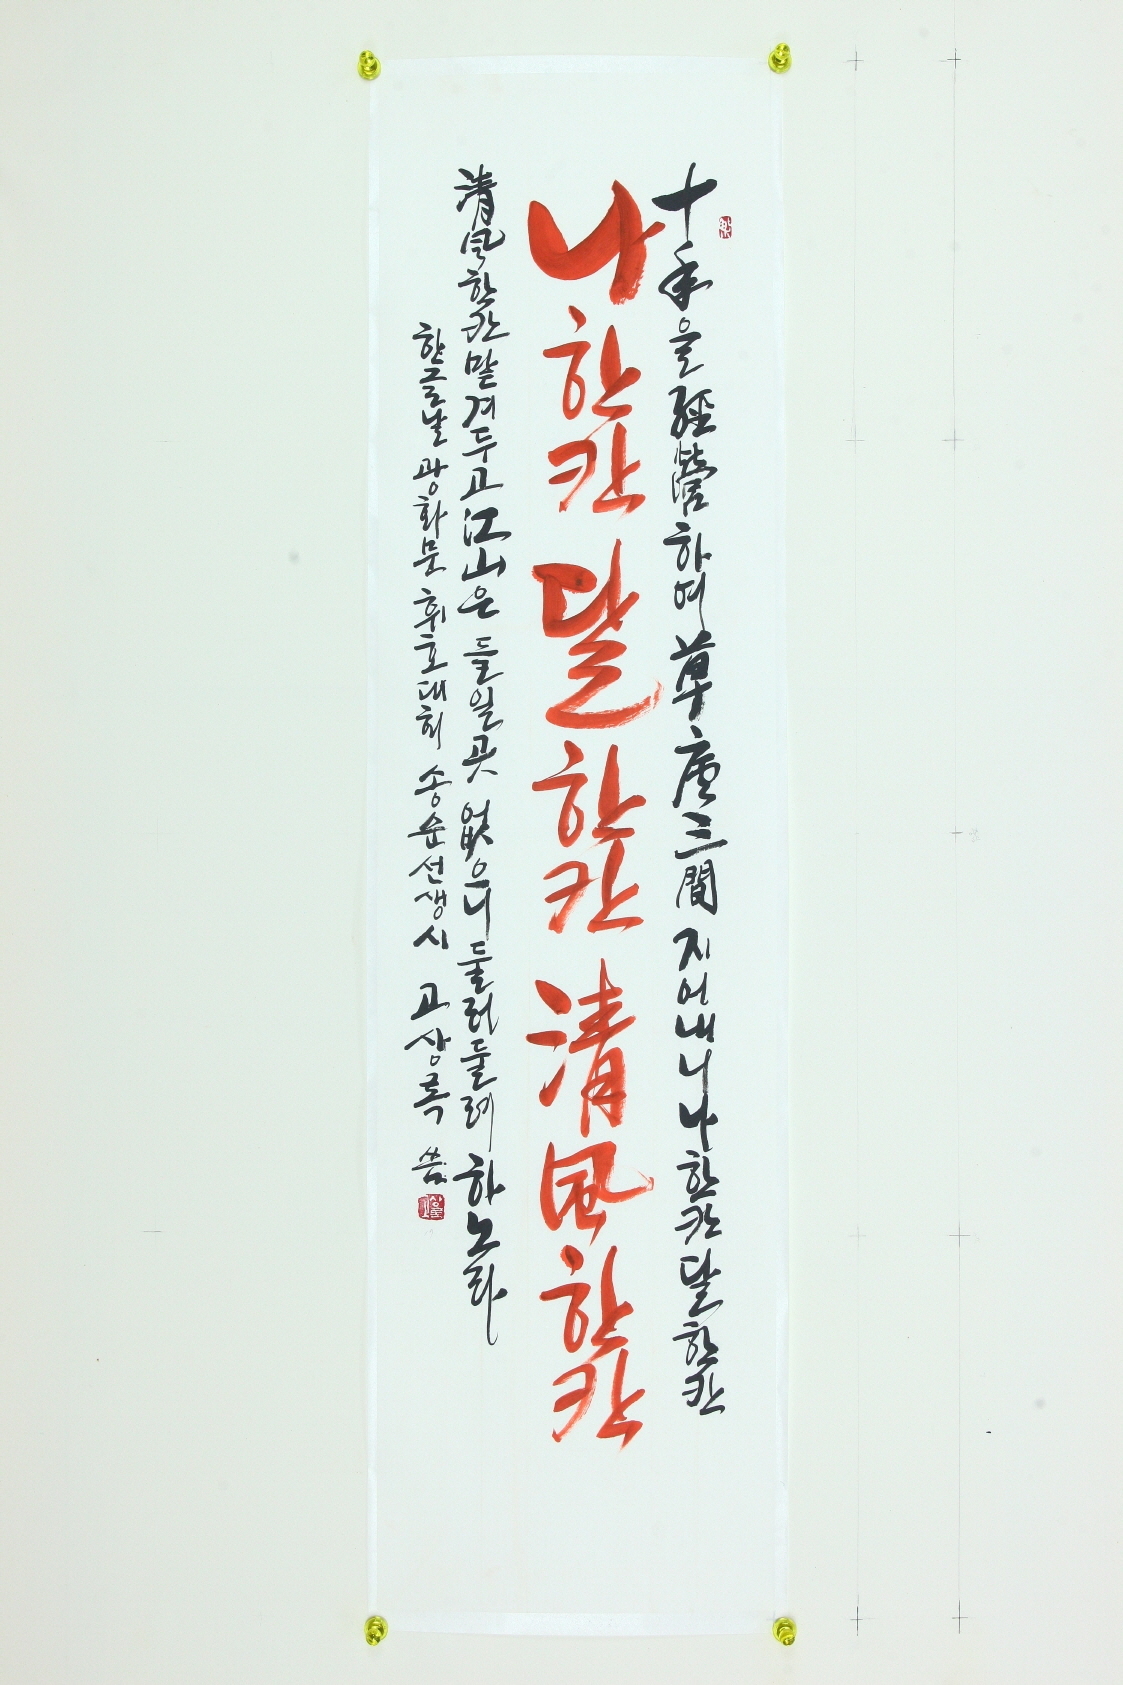 十年을 經營하여 草廬三間 지어내니 나 한칸 달 한칸
나 한칸 달 한칸 清風 한칸
清風 한칸 맡겨두고 江山은 들일 곳 없으니 둘러 둘러 하노라
한글날 광화문 휘호대회 송순선생시 고상록 씀